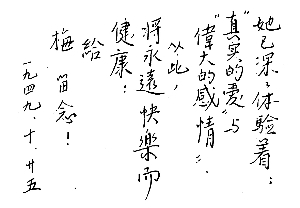 她已深深体验着：
“真实的爱”与
“偉大的感情”。
以此，
将永遠快樂而
健康：
給
梅 留念！
一九四九、十、廿五